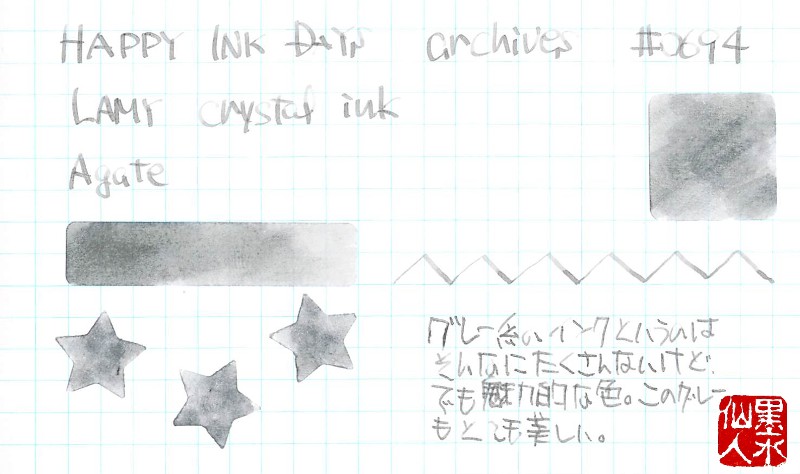 HAPPY INK DAYS archives #0694
LAMY crystal ink
Agate
グレー系のインクというのは
そんなにたくさんないけど、
でも魅力的な色。このグレー
もとても美しい。
墨水
仙人